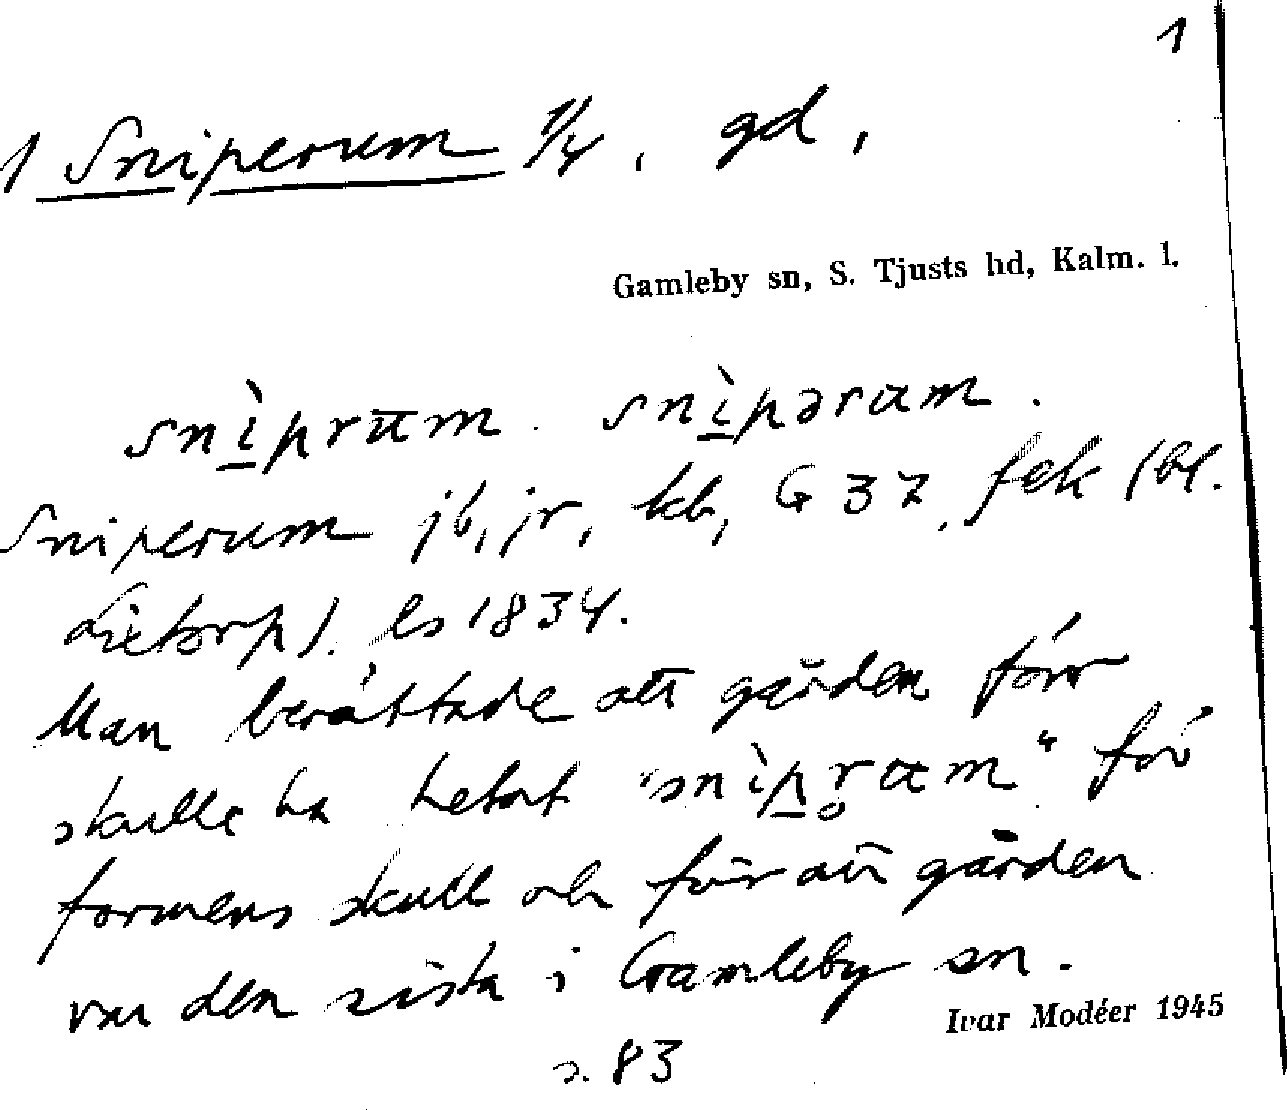 1
1 Sniperum 1/4, gd,
Gamleby sn, S. Tjusts hd, Kalm. l.
snìprum. snìpərum.
Sniperum jb, jr, kb, G 37, fek (bl.
Lietorp). ls 1834.
Man berättade att gården förr
skulle ha hetat "snìpr̥um" för
formens skull och för att gården
var den sista i Gamleby sn.
Ivar Modéer 1945
s. 83